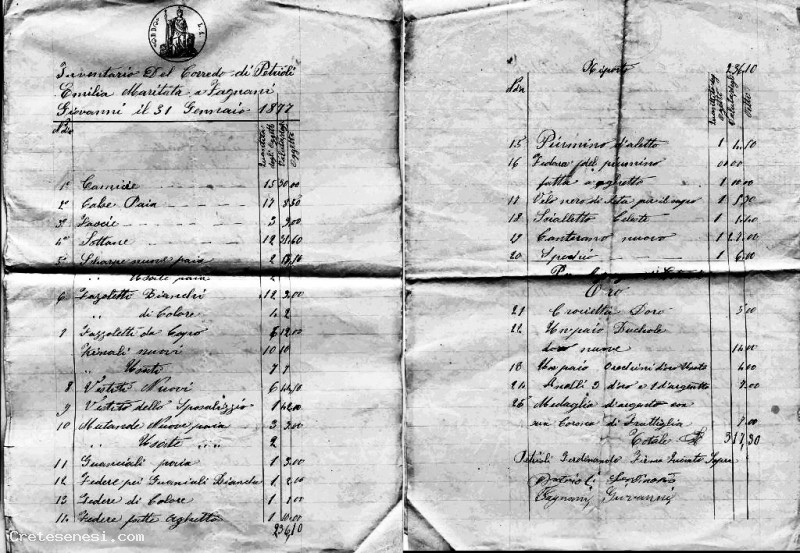 Inventario Del Corredo di Petrioli
Emilia Maritata a Fagnani
Giovanni il 31 Gennaio 1877
Quantità degli Oggetti
Oggetto
1° Camicie 15 30.00
2° Calze Paia 17 8.50
3° 3 3.00
4° Sottane 12 31.60
5° Scarpe nuove paia 2
" Usate paia 2
6 Fazzoletti Bianchi 12 3.00
" di Colore 4 2
7 Fazzoletti da Capo 6 12.00
nuovi 10 10
" Usati 7 7
8 Vestiti Nuovi 6
9 Vestito dello Sposalizzio 1 42.00
10 Mutande Nuove paia 3 3.00
" Usate " " 2
11 Guanciali paia 1 3.00
12 Federe pei Guanciali Bianche 1 2.00
13 Federe di Colore 1 1.00
14 Federe fatte Aghetto 1 10.00
236.10
Riporto 236.10
15 Piumino d'aletto 1
16 Fodera pel piumino
fatta a aghetto 1 10.00
17 Velo nero di seta per il capo 1
18 Scialletto Celeste 1
19 Canterano nuovo 1
20 Specchio 1 6.00
Oro
21 Crocietta Doro 5.00
22 Un paio Buchole
nuove 14.00
Un paio Orechini doro Usato 4.00
24 Anelli 3 d'oro e 1 d'argento
25 Medaglia d'argento con
una Corona di
Totale 317.30
Petrioli Ferdinando
Fagnani Giovanni
Cretesenesi.com